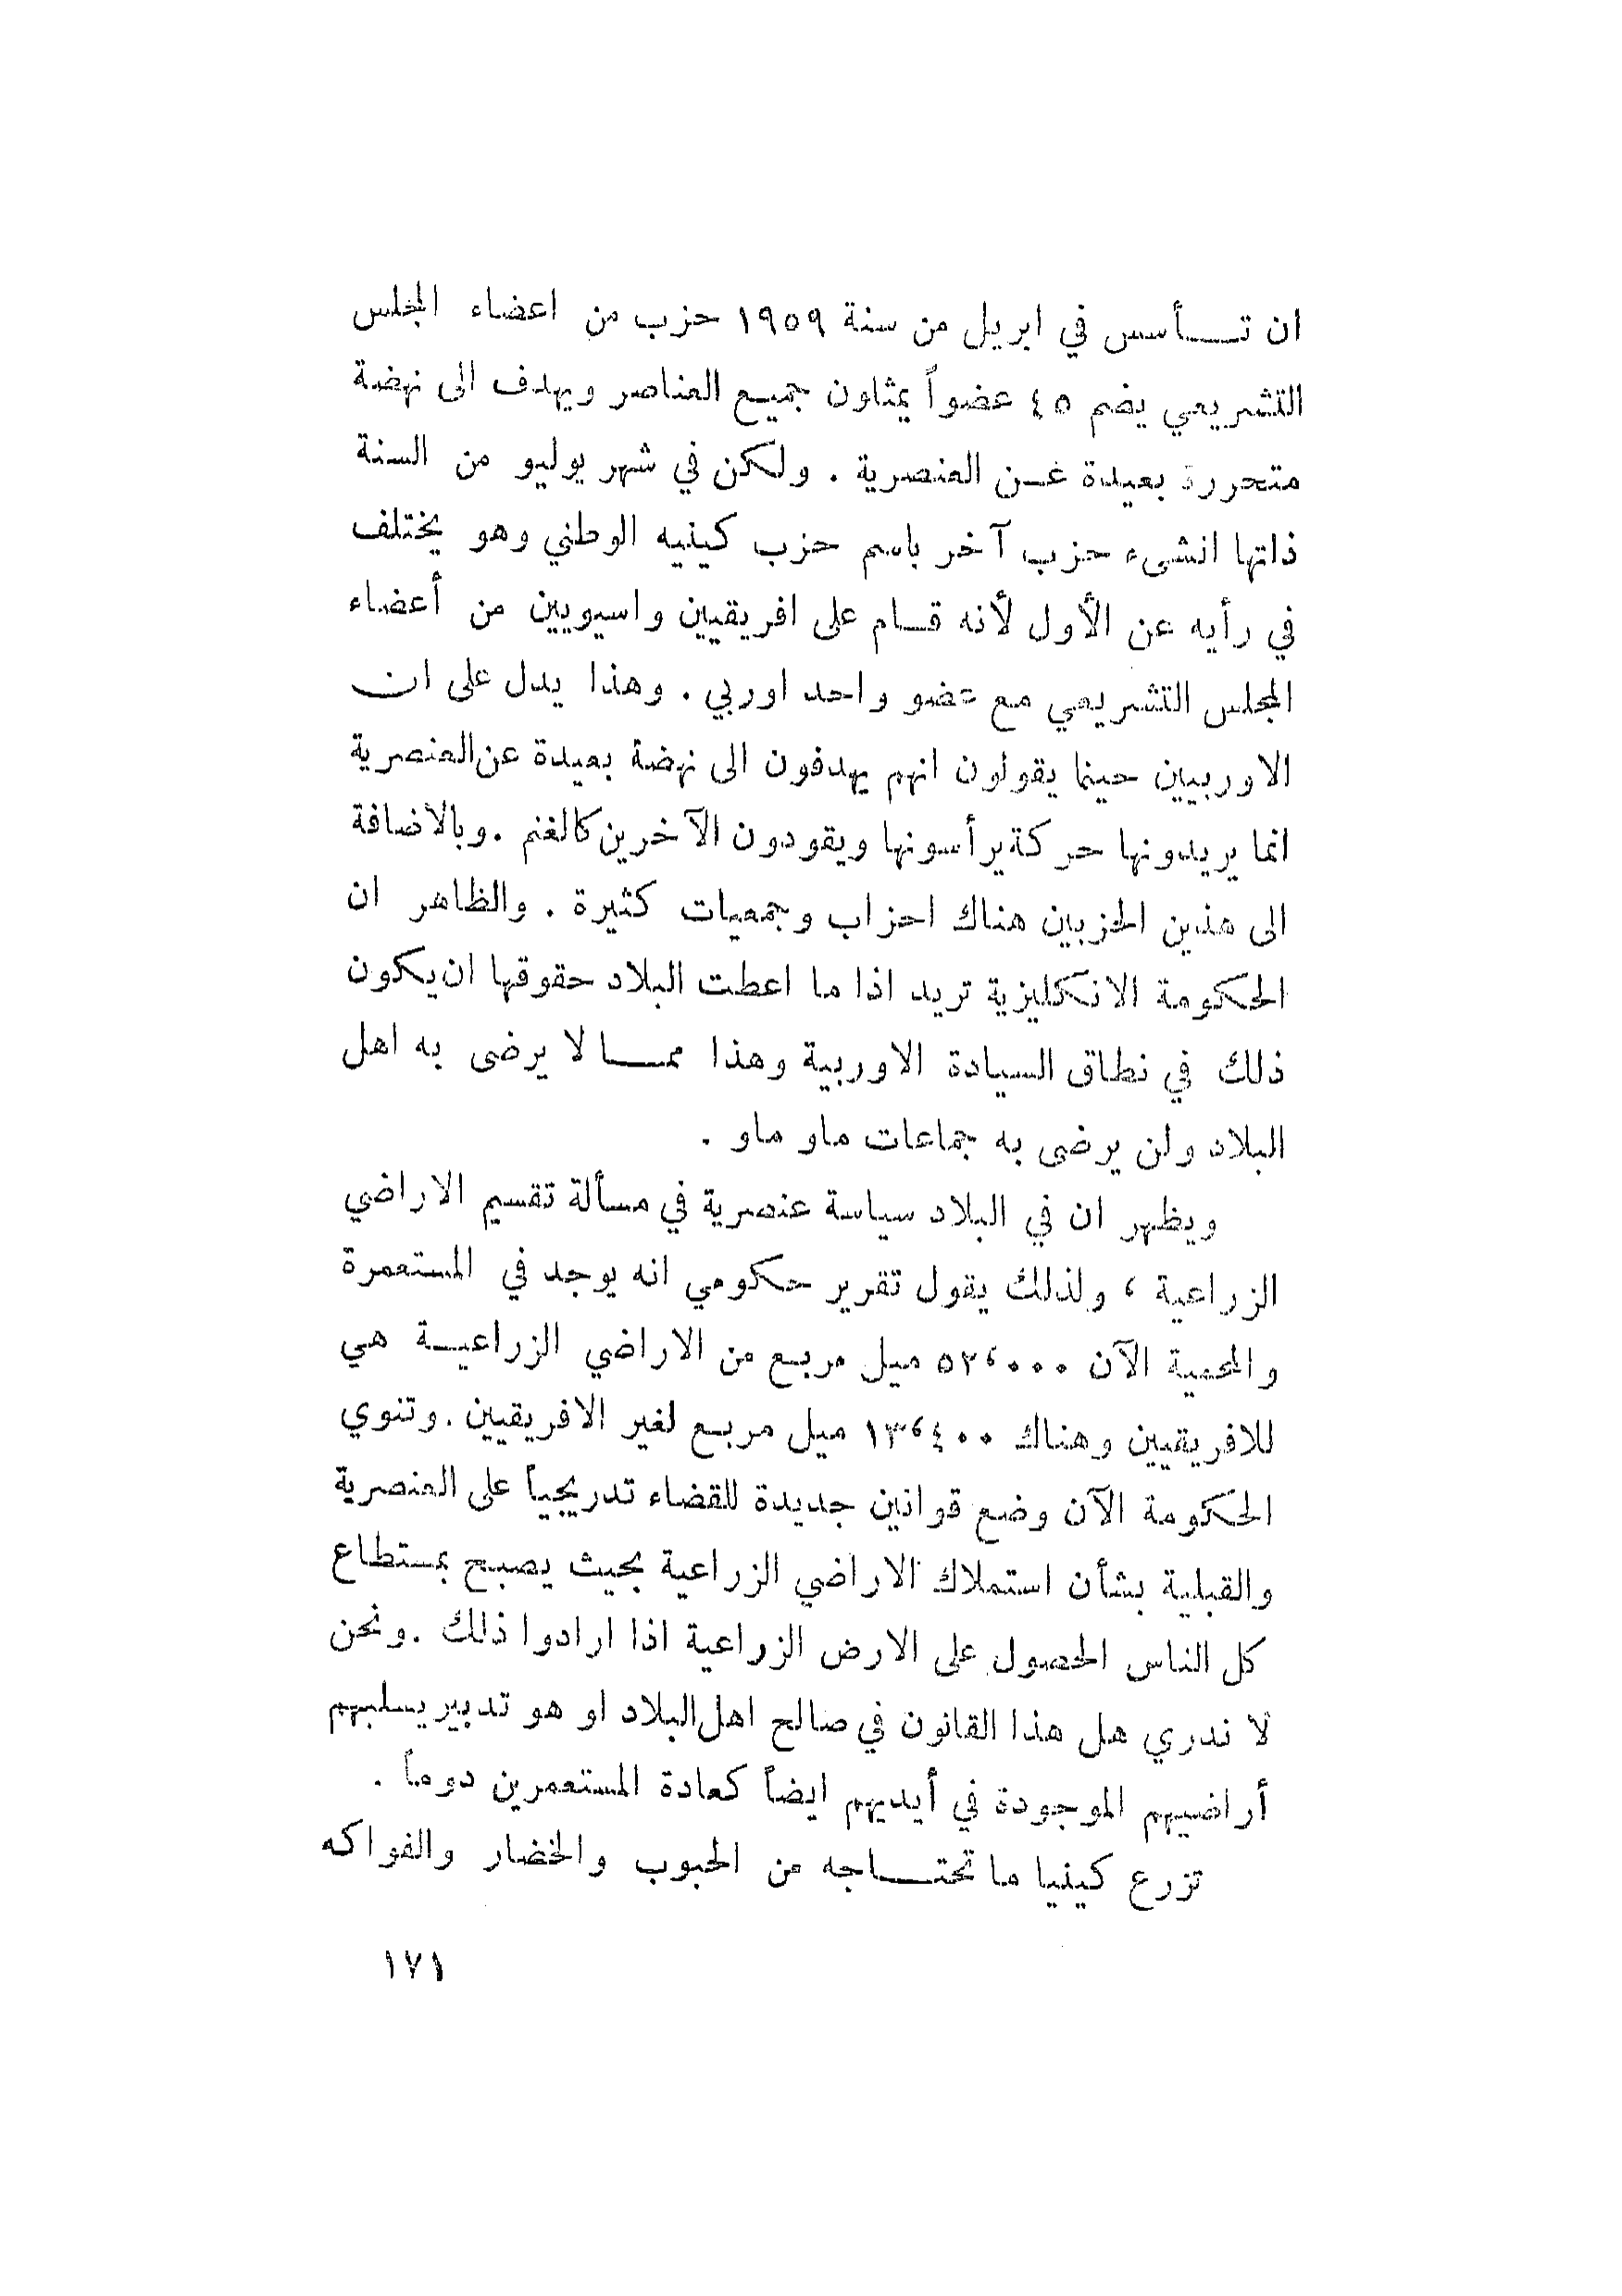 ان تـــأسس في ابريل من سنة ١٩٥٩ حزب من اعضاء المجلس
التشريعي يضم ٤٥ عضواً يمثلون جميع العناصر ويهدف الى نهضة
متحررة بعيدة عـن العنصرية . ولكن في شهر يوليو من السنة
ذاتها انشىء حزب آخر باسم حزب كينيه الوطني وهو يختلف
في رأيه عن الأول لأنه قـام على افريقيين واسيويين من أعضاء
المجلس التشريعي مع عضو واحد اوربي . وهذا يدل على ان
الاوربيين حينما يقولون انهم يهدفون الى نهضة بعيدة عن العنصرية
انما يريدونها حركة يرأسونها ويقودون الآخرين كالغنم . وبالاضافة
الى هذين الحزبين هناك احزاب وجمعيات كثيرة . والظاهر ان
الحكومة الانكليزية تريد اذا ما اعطت البلاد حقوقها ان يكون
ذلك في نطاق السيادة الاوربية وهذا ممـــا لا يرضى به اهل
البلاد ولن يرضى به جماعات ماو ماو .
ويظهر ان في البلاد سياسة عنصرية في مسألة تقسيم الاراضي
الزراعية ، ولذلك يقول تقرير حكومي انه يوجد في المستعمرة
والمحمية الآن ٥٢،٠٠٠ ميل مربع من الاراضي الزراعيـة هي
للافريقيين وهناك ١٣،٤٠٠ ميل مربع لغير الافريقيين . وتنوي
الحكومة الآن وضع قوانين جديدة للقضاء تدريجياً على العنصرية
والقبلية بشأن استملاك الاراضي الزراعية بحيث يصبح بمستطاع
كل الناس الحصول على الارض الزراعية اذا ارادوا ذلك . ونحن
لا ندري هل هذا القانون في صالح اهل البلاد او هو تدبير يسلبهم
أراضيهم الموجودة في أيديهم ايضاً كعادة المستعمرين دوماً .
تزرع كينيا ما تحتـــاجه من الحبوب والخضار والفواكه
١٧١